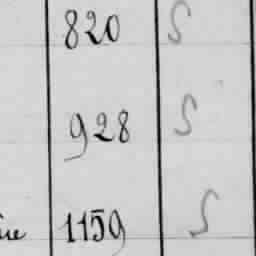 820 S
928 S
1159 S